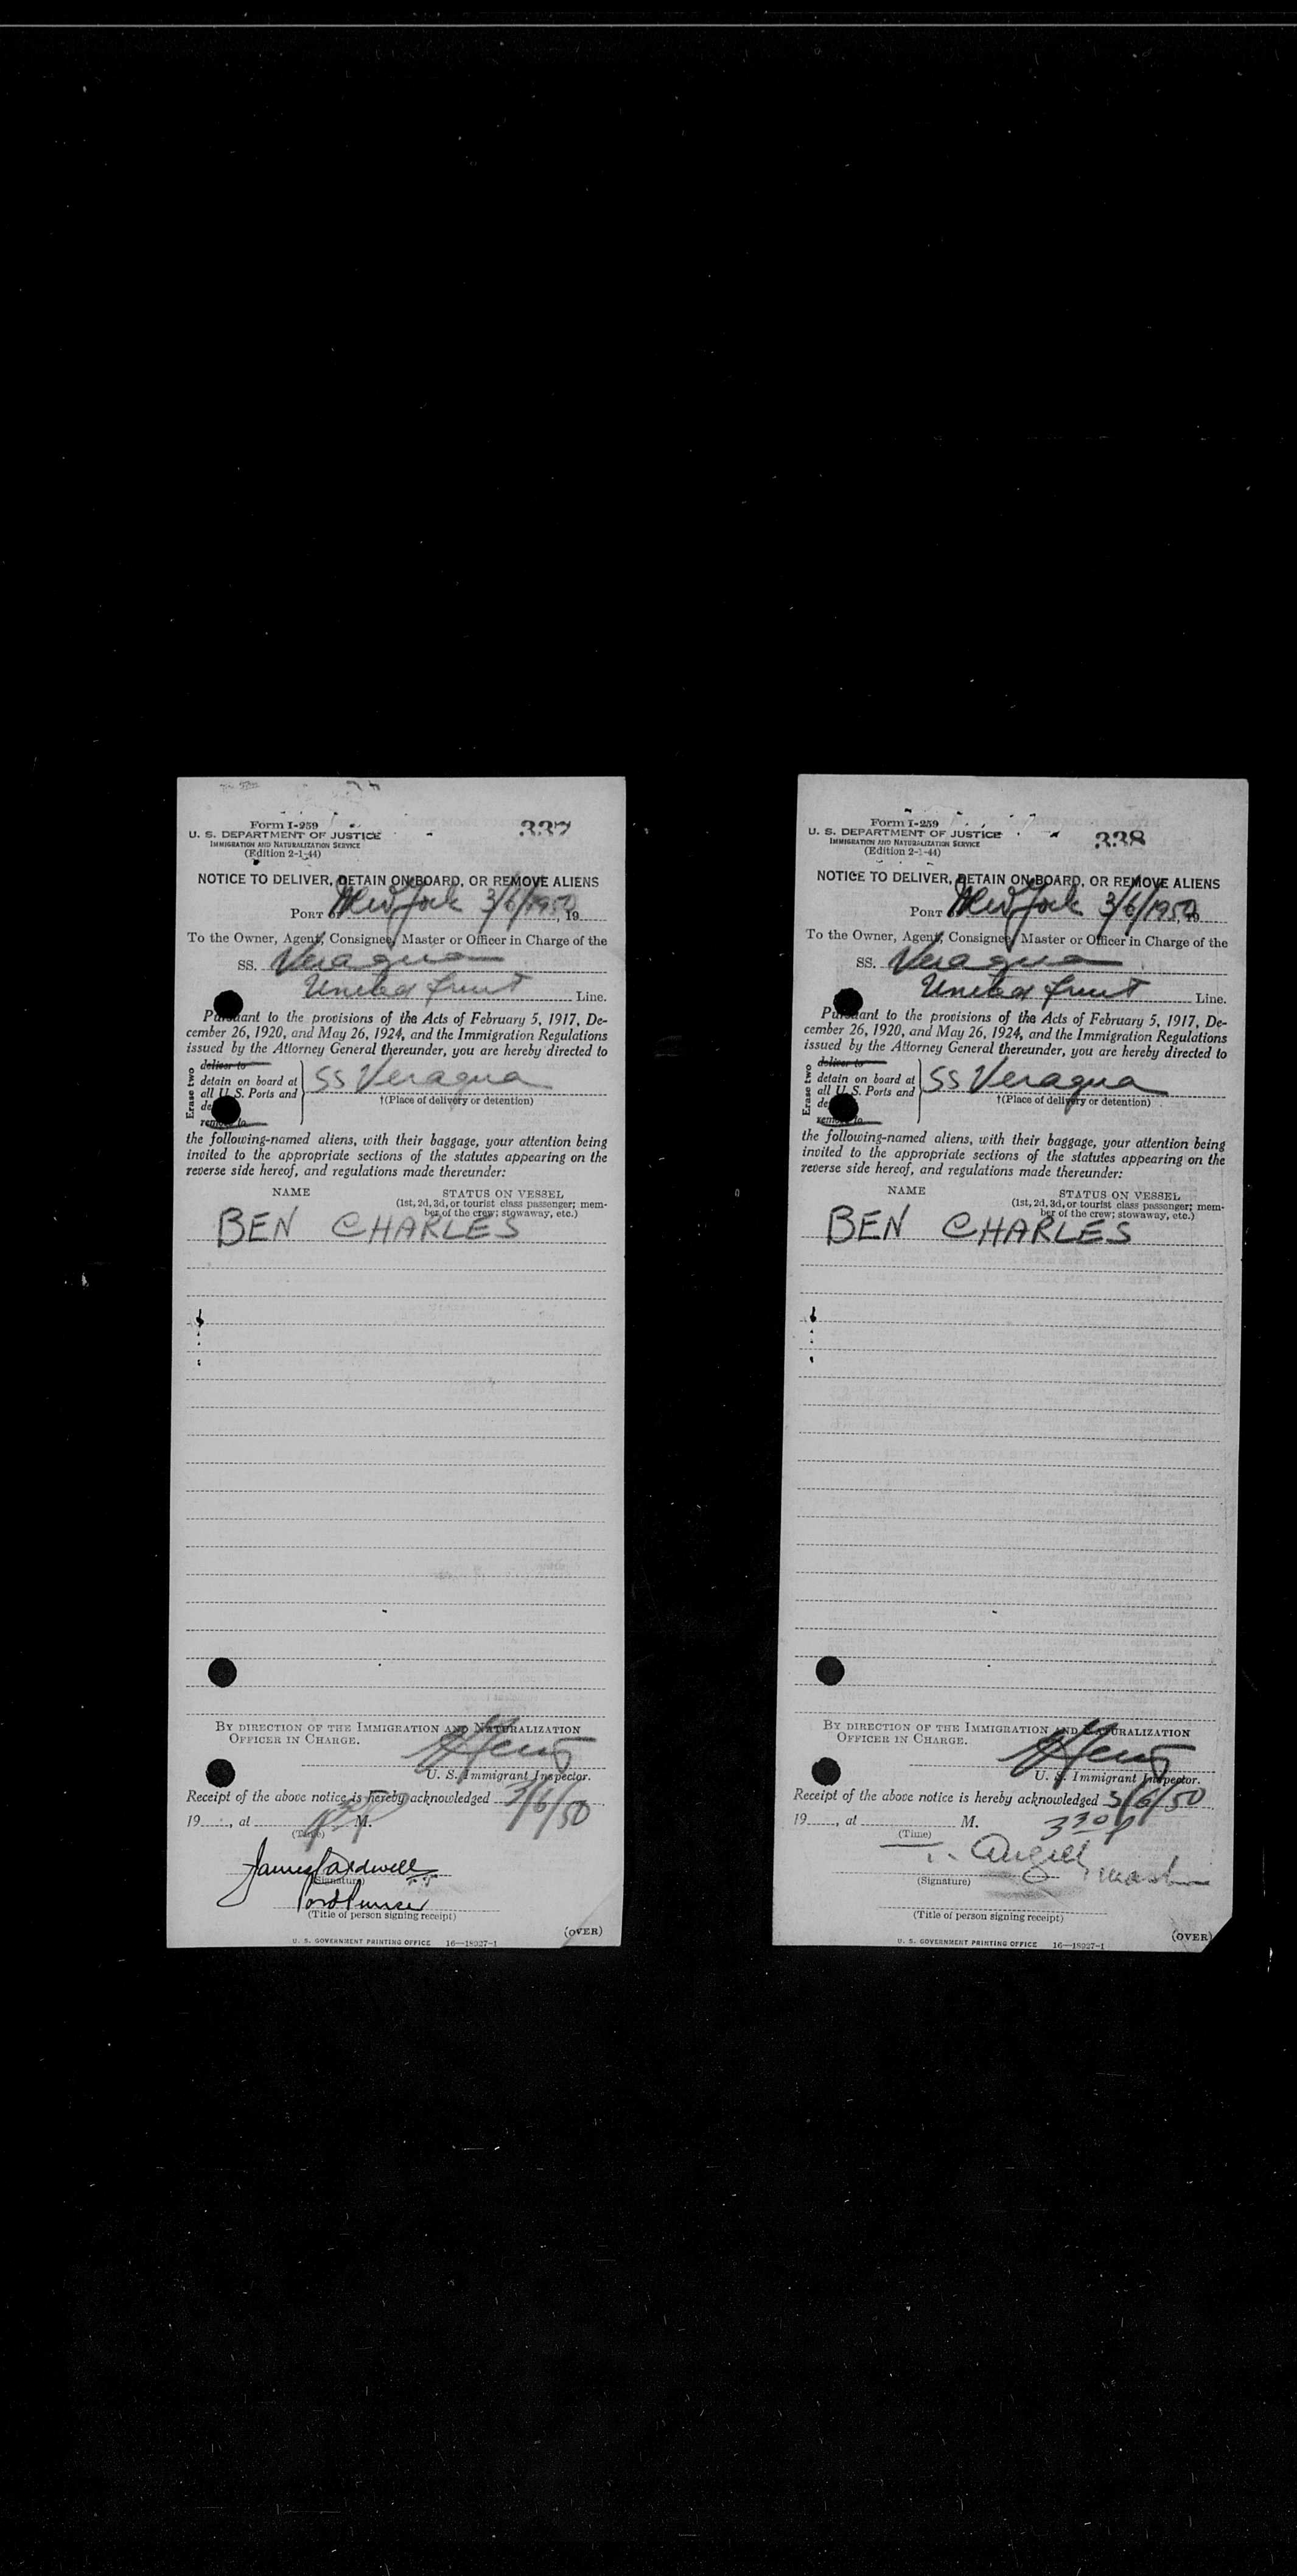 337
Form I-259
U. S. DEPARTMENT OF JUSTICE
IMMIGRATION AND NATURALIZATION SERVICE
(Edition 2-1-44)
NOTICE TO DELIVER, DETAIN ON BOARD, OR REMOVE ALIENS
PORT of New York 3/6/1950, 19
To the Owner, Agent, Consignee, Master or Officer in Charge of the
SS. Veragua
United Fruit Line.
Pursuant to the provisions of the Acts of February 5, 1917, De-
cember 26, 1920, and May 26, 1924, and the Immigration Regulations
issued by the Attorney General thereunder, you are hereby directed to
Erase two
deliver to
detain on board at
all U.S. Ports and
SS Veragua
†(Place of delivery or detention)
remove to
the following-named aliens, with their baggage, your attention being
invited to the appropriate sections of the statutes appearing on the
reverse side hereof, and regulations made thereunder:
NAME STATUS ON VESSEL
(1st, 2d, 3d, or tourist class passenger; mem-
ber of the crew; stowaway, etc.)
BEN CHARLES
BY DIRECTION OF THE IMMIGRATION AND NATURALIZATION
OFFICER IN CHARGE.
U. S. Immigrant Inspector.
Receipt of the above notice is hereby acknowledged 3/6/50
19, at M.
(Time)
James Cardwell
(Signature)
(Title of person signing receipt)
(OVER)
U. S. GOVERNMENT PRINTING OFFICE 16—18227-1
338
Form I-259
U. S. DEPARTMENT OF JUSTICE
IMMIGRATION AND NATURALIZATION SERVICE
(Edition 2-1-44)
NOTICE TO DELIVER, DETAIN ON BOARD, OR REMOVE ALIENS
PORT of New York 3/6/1950, 19
To the Owner, Agent, Consignee, Master or Officer in Charge of the
SS. Veragua
United Fruit Line.
Pursuant to the provisions of the Acts of February 5, 1917, De-
cember 26, 1920, and May 26, 1924, and the Immigration Regulations
issued by the Attorney General thereunder, you are hereby directed to
Erase two
deliver to
detain on board at
all U.S. Ports and
SS Veragua
†(Place of delivery or detention)
remove to
the following-named aliens, with their baggage, your attention being
invited to the appropriate sections of the statutes appearing on the
reverse side hereof, and regulations made thereunder:
NAME STATUS ON VESSEL
(1st, 2d, 3d, or tourist class passenger; mem-
ber of the crew; stowaway, etc.)
BEN CHARLES
BY DIRECTION OF THE IMMIGRATION AND NATURALIZATION
OFFICER IN CHARGE.
U. S. Immigrant Inspector.
Receipt of the above notice is hereby acknowledged 3/6/50
19, at M. 330 P
(Time)
(Signature)
(Title of person signing receipt)
(OVER)
U. S. GOVERNMENT PRINTING OFFICE 16—18227-1